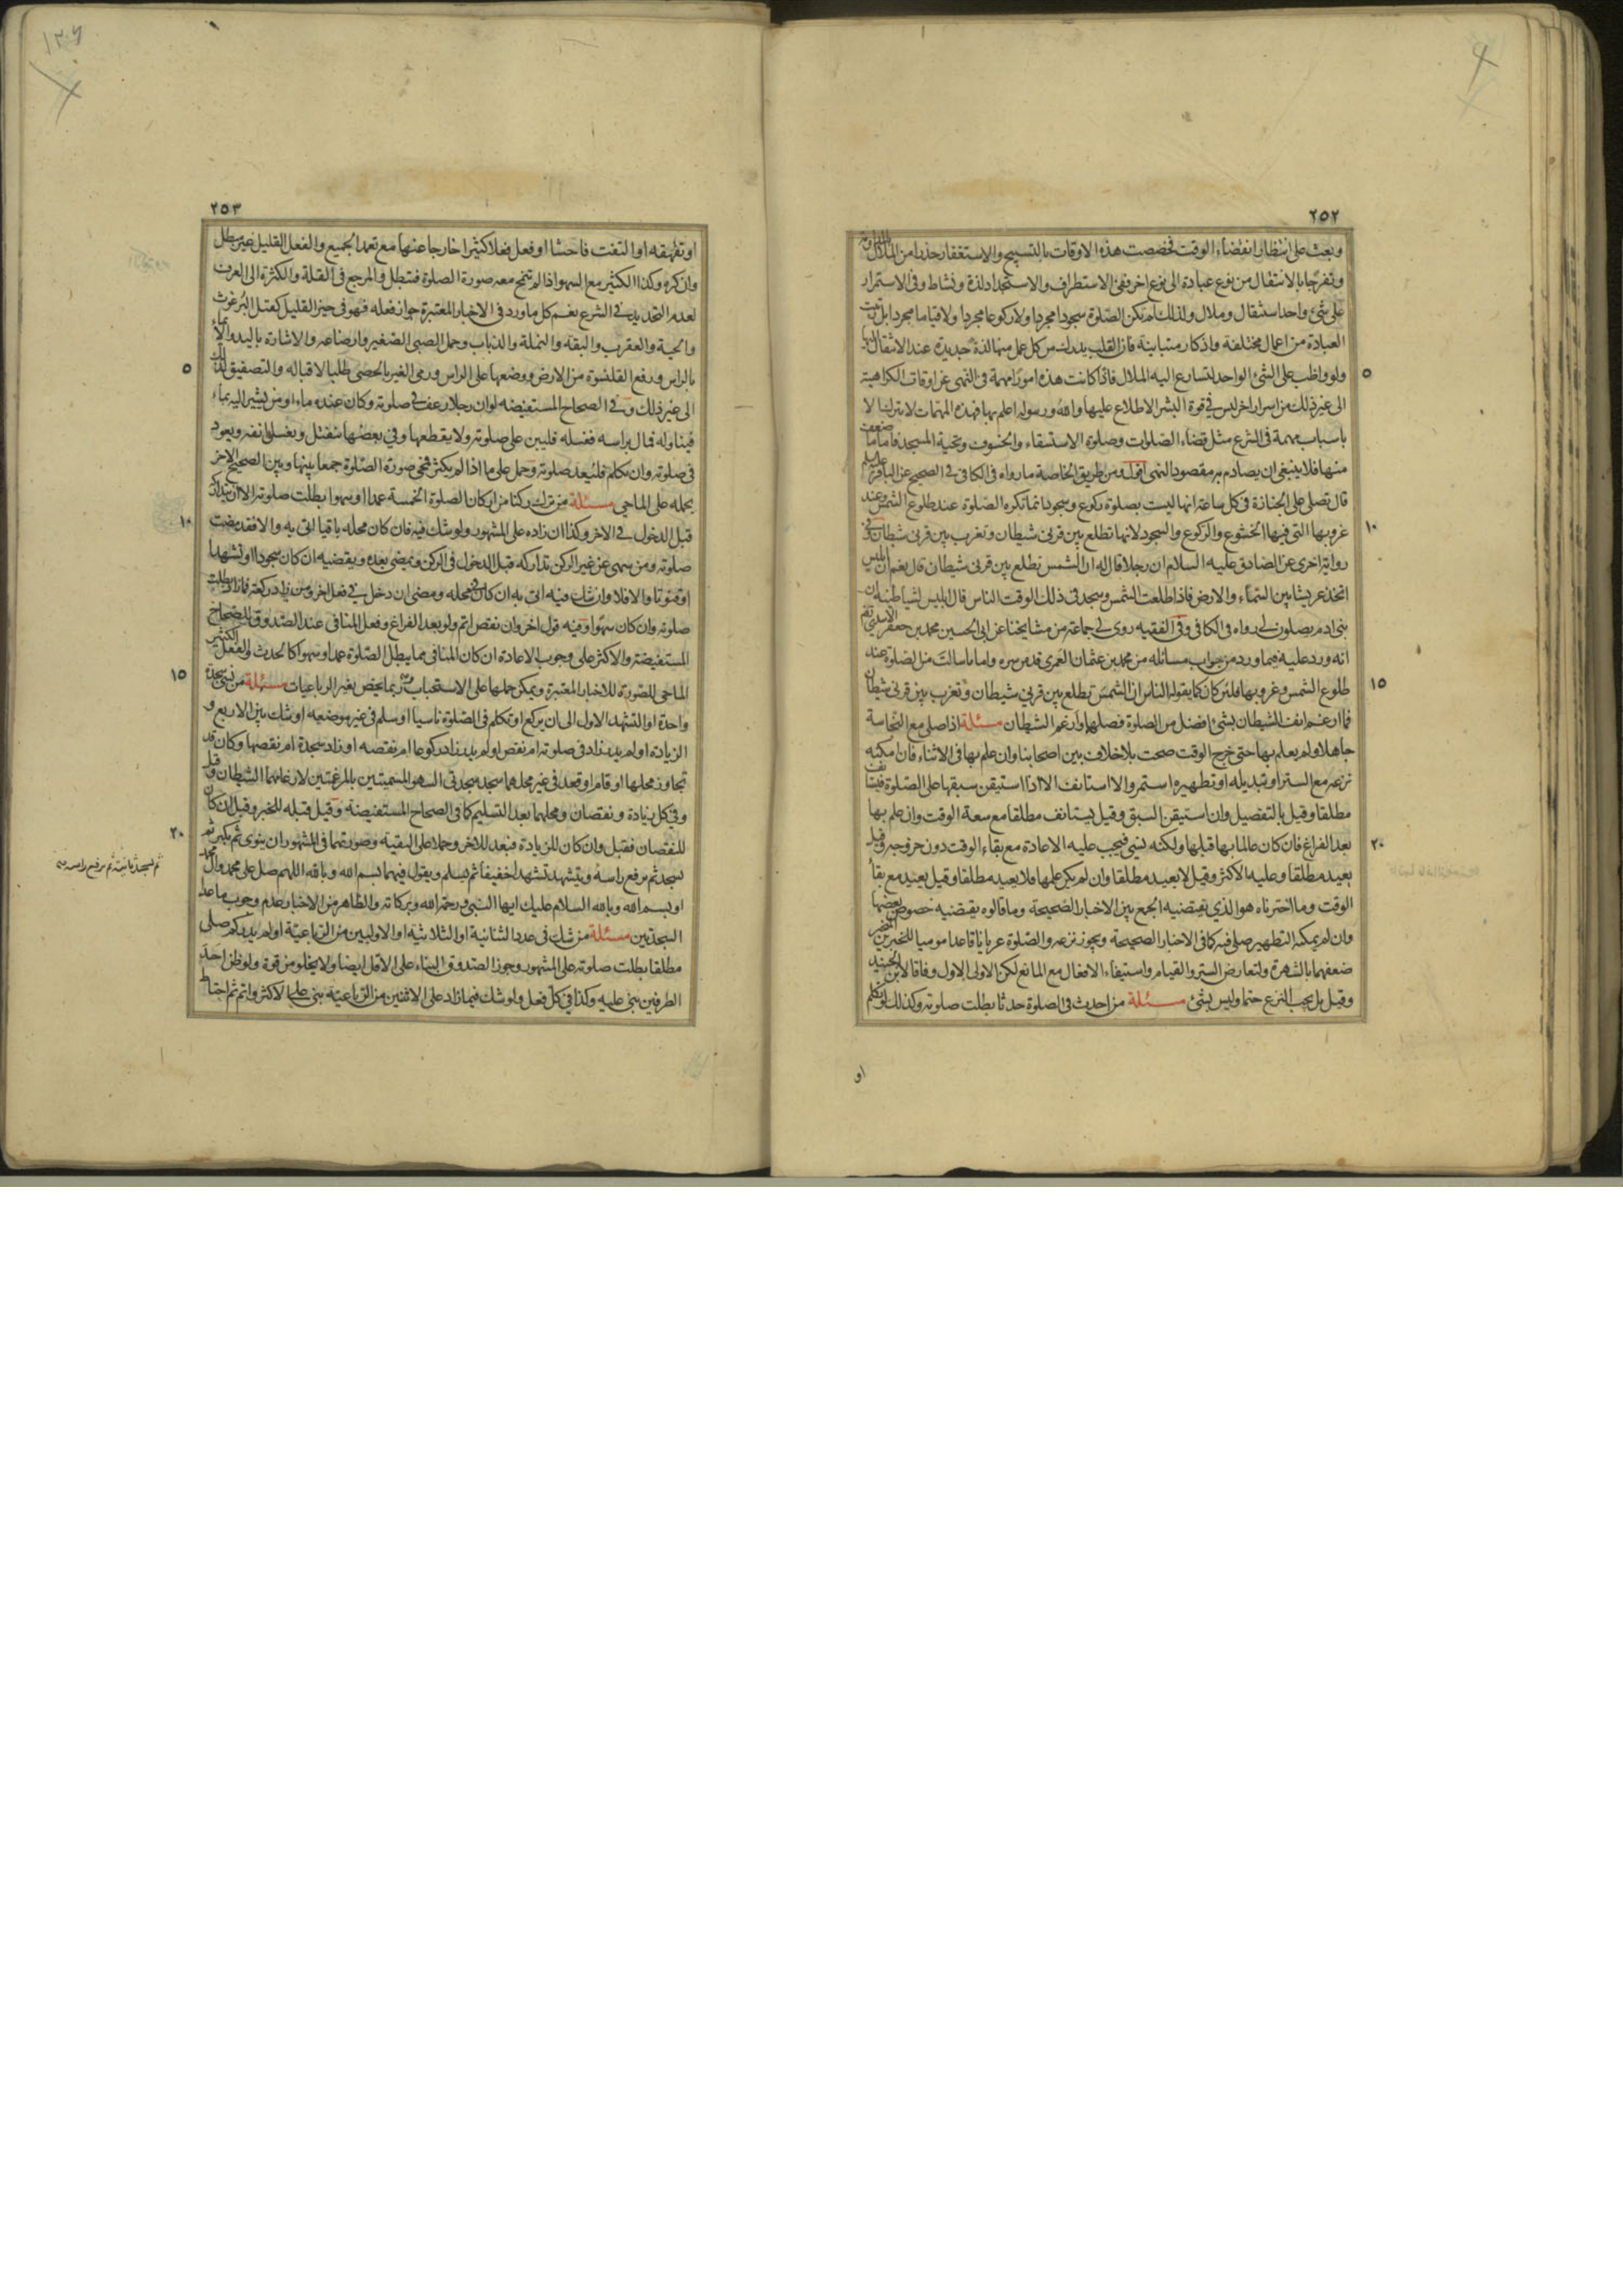 ٢٥٢
وبعث على انتظار انقضاء الوقت فخصصت هذه الاوقات بالتسبيح والاستغفار حذرا من الملال
وتفرجا بالانتقال من نوع عبادة الى نوع اخر ففى الاستطراف والاستجداد لذة ونشاط وفى الاستمرار
على شئ واحد استثقال وملال ولذلك لم تكن الصلوة سجودا مجردا ولا ركوعا مجردا ولا قياما مجردا بل رتبت
العبادة من اعمال مختلفة واذكار متباينة فان القلب يدرك من كل عمل منها لذة جديدة عند الانتقال اليها
ولو واظب على الشئ الواحد لتسارع اليه الملال فاذا كانت هذه امورا مهمة فى النهى عن اوقات الكراهية
الى غير ذلك من اسرار اخر ليس فى قوة البشر الاطلاع عليها والله ورسوله اعلم بها فهذه المهمات لا تترك الا
باسباب مهمة فى الشرع مثل قضاء الصلوات وصلوة الاستسقاء والخسوف وتحية المسجد فاما ما ضعف
منها فلا ينبغى ان يصادم به مقصود النهى اقول ومن طريق الخاصة ما رواه فى الكافى فى الصحيح عن الباقر عليه السلم
قال تصلى على الجنازة فى كل ساعة انها ليست بصلوة ركوع وسجود انما تكره الصلوة عند طلوع الشمس وعند
غروبها التى فيها الخشوع والركوع والسجود لانها تطلع بين قرنى شيطان وتغرب بين قرنى شيطان وفى
رواية اخرى عن الصادق عليه السلام ان رجلا قال له ان الشمس تطلع بين قرنى شيطان قال نعم ان ابليس
اتخذ عريشا بين السماء والارض فاذا طلعت الشمس وسجد فى ذلك الوقت الناس قال ابليس لشياطينه ان
بنى ادم يصلون لى رواه فى الكافى وفى الفقيه روى لى جماعة من مشايخنا عن ابى الحسين محمد بن جعفر الاسدى رضى
انه ورد عليه فيما ورد من جواب مسائله من محمد بن عثمان العمرى قدس سره واما ما سالت من الصلوة عند
طلوع الشمس وغروبها فلئن كان كما يقوله الناس ان الشمس تطلع بين قرنى شيطان وتغرب بين قرنى شيطان
فما ارغم انف الشيطان بشئ افضل من الصلوة فصلها وارغم الشيطان مسئلة اذا صلى مع النجاسة
جاهلا ولم يعلم بها حتى خرج الوقت صحت بلا خلاف بين اصحابنا وان علم بها فى الاثناء فان امكنه
نزعه مع الستر او تبديله او تطهيره استمر والا استانف الا اذا استيقن سبقها على الصلوة فيستانف
مطلقا وقيل بالتفصيل وان استيقن السبق وقيل يستانف مطلقا مع سعة الوقت وان علم بها
بعد الفراغ فان كان عالما بها قبلها ولكنه نسى فيجب عليه الاعادة مع بقاء الوقت دون خروجه وقيل
يعيد مطلقا وعليه الاكثر وقيل لا يعيد مطلقا وان لم يكن علمها فلا يعيد مطلقا وقيل يعيد مع بقاء
الوقت وما اخترناه هو الذى يقتضيه الجمع بين الاخبار الصحيحة وما قالوه يقتضيه خصوص بعضها
وان لم يمكنه التطهير صلى فيه كما فى الاخبار الصحيحة ويجوز نزعه والصلوة عريانا قاعدا موميا للخبرين المنجبر
ضعفهما بالشهرة ولتعارض الستر والقيام واستيفاء الافعال مع المانع لكن الاولى الاول وفاقا لابن الجنيد
وقيل بل يجب النزع حتما وليس بشئ مسئلة من احدث فى الصلوة حدثا بطلت صلوته وكذلك لو تكلم
او
٢٥٣
او تقهقه او التفت فاحشا او فعل فعلا كثيرا خارجا عنها مع تعمد الجميع والفعل القليل غير مبطل
وان كره وكذا الكثير مع السهو اذا لم تنمح معه صورة الصلوة فتبطل والمرجع فى القلة والكثرة الى العرف
لعدم التحديد فى الشرع نعم كل ما ورد فى الاخبار المعتبرة جواز فعله فهو فى حيز القليل كقتل البرغوث
والحية والعقرب والبقة والنملة والذباب وحمل الصبى الصغير وارضاعه والاشارة باليد والايماء
بالراس ورفع القلنسوة من الارض ووضعها على الراس ورمى الغير بالحصى طلبا لاقباله والتصفيق لذلك
الى غير ذلك وفى الصحاح المستفيضه لو ان رجلا رعف فى صلوته وكان عنده ماء او من يشير اليه بماء
فيناوله فمال براسه فغسله فليبن على صلوته ولا يقطعها وفى بعضها ينفتل ويغسل انفه ويعود
فى صلوته وان تكلم فليعد صلوته وحمل على ما اذا لم يكثر فتمحى صورة الصلوة جمعا بينها وبين الصحيح الاخر
بحمله على الماحى مسئلة من ترك ركنا من اركان الصلوة الخمسة عمدا او سهوا بطلت صلوته الا ان يتدارك
قبل الدخول فى الاخر وكذا ان زاده على المشهور ولو شك فيه فان كان محله باقيا اتى به والا فقد مضت
صلوته ومن سهى عن غير الركن تداركه قبل الدخول فى الركن ويمضى بعده ويقضيه ان كان سجودا او تشهدا
او قنوتا والا فلا وان شك فيه اتى به ان كان فى محله ومضى ان دخل فى فعل اخر ومن زاد ركعة فازاد بطلت
صلوته وان كان سهوا وفيه قول اخر وان نقص اتم ولو بعد الفراغ وفعل المنافى عند الصدوق للصحاح
المستفيضة والاكثر على وجوب الاعادة ان كان المنافى مما يبطل الصلوة عمدا وسهوا كالحدث والفعل الكثير
الماحى للصورة للاخبار المعتبرة ويمكن حملها على الاستحباب وربما يخص بغير الرباعيات مسئلة من نسى سجدة
واحدة او التشهد الاول الى ان يركع او تكلم فى الصلوة ناسيا او سلم فى غير موضعه او شك بين الاربع و
الزيادة او لم يدر زاد فى صلوته ام نقص او لم يدر زاد ركوعا ام نقصه او زاد سجدة ام نقصها وكان قد
تجاوز محلها او قام او قعد فى غير محلهما سجد سجدتى السهو المسميتين بالمرغمتين لارغامهما الشيطان وقيل
وفى كل زيادة ونقصان ومحلهما بعد التسليم كما فى الصحاح المستفيضة وقيل قبله للخبر وقيل ان كان
للنقصان فقبل وان كان للزيادة فبعد للاخر وحملا على التقية وصورتهما فى المشهور ان ينوى ثم يكبر ثم
يسجد ثم يرفع راسه ويتشهد تشهدا خفيفا ثم يسلم ويقول فيهما بسم الله وبالله اللهم صل على محمد وال محمد
او بسم الله وبالله السلام عليك ايها النبى ورحمة الله وبركاته والظاهر من الاخبار عدم وجوب ما عدا
السجدتين مسئلة من شك فى عدد الثنائية او الثلاثيه او الاوليين من الرباعية او لم يدر كم صلى
مطلقا بطلت صلوته على المشهور وجوز الصدوق البناء على الاقل ايضا ولا يخلو من قوة ولو ظن احد
الطرفين بنى عليه وكذا فى كل فعل ولو شك فيما زاد على الاثنتين من الرباعية بنى على الاكثر واتم ثم احتاط
ثم يسجد ثانية ثم يرفع راسه